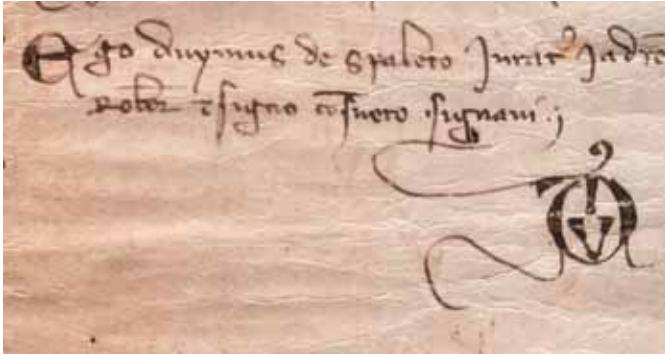 Ego duymus de spaleto Jurat⁹ Jadrē
Robor̄ ⁊ signo cōsueto signaui